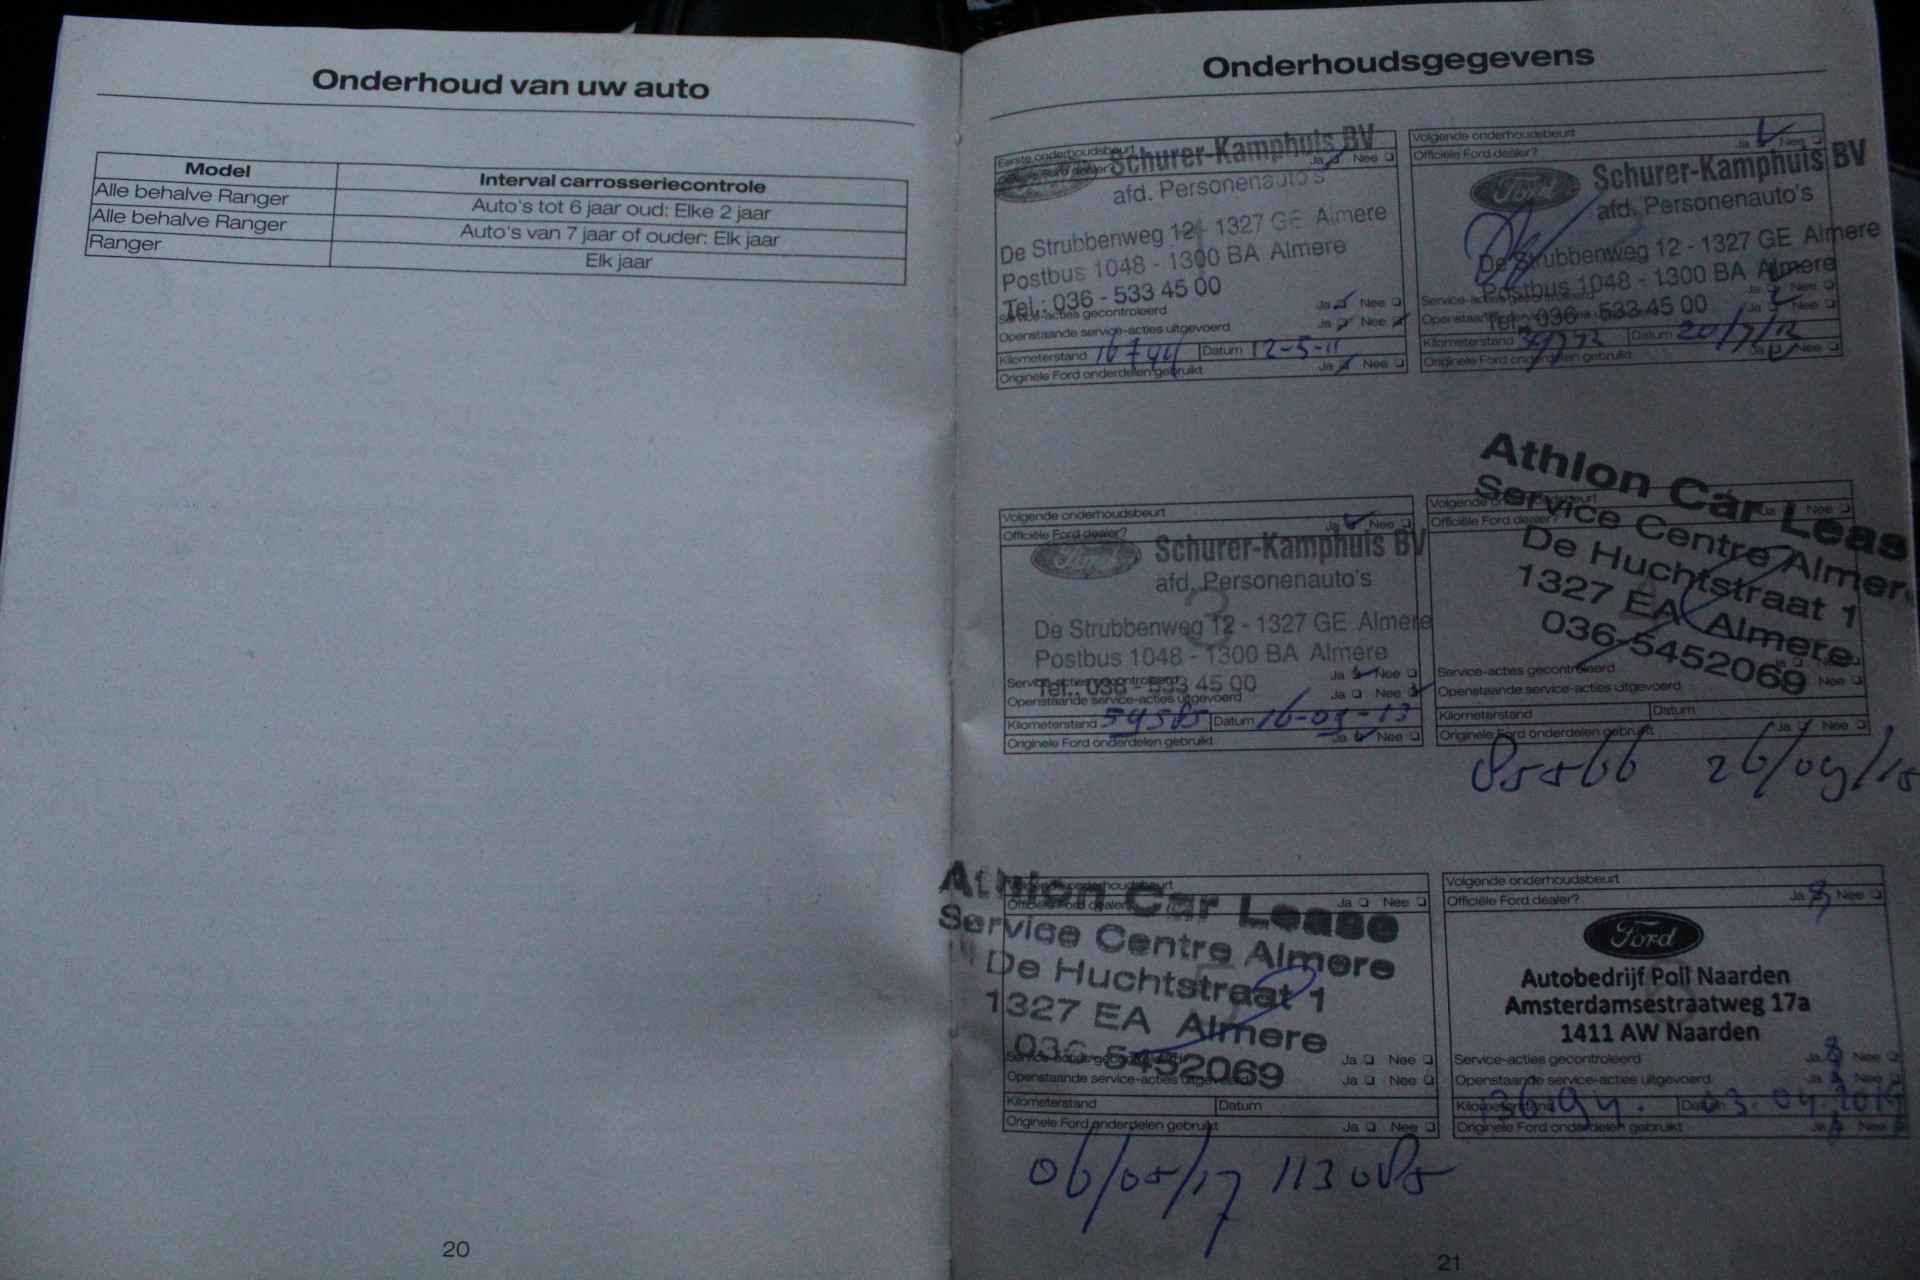 Onderhoud van uw auto
Model Interval carrosseriecontrole
Alle behalve Ranger Auto's tot 6 jaar oud: Elke 2 jaar
Alle behalve Ranger Auto's van 7 jaar of ouder: Elk jaar
Ranger Elk jaar
20
Onderhoudsgegevens
Eerste onderhoudsbeurt
Ja Nee
Schurer-Kamphuis BV
afd. Personenauto's
De Strubbenweg 12 - 1327 GE Almere
Postbus 1048 - 1300 BA Almere
Tel.: 036 - 533 45 00
Service-acties gecontroleerd Ja Nee
Openstaande service-acties uitgevoerd Ja Nee
Kilometerstand 16744 Datum 12-5-11
Originele Ford onderdelen gebruikt Ja Nee
Volgende onderhoudsbeurt
Officiële Ford dealer? Ja Nee
Ford
Schurer-Kamphuis BV
afd. Personenauto's
De Strubbenweg 12 - 1327 GE Almere
Postbus 1048 - 1300 BA Almere
Tel.: 036 - 533 45 00
Ja Nee
Ja Nee
Kilometerstand Datum 20/7/12
Originele Ford onderdelen gebruikt Ja Nee
Volgende onderhoudsbeurt
Officiële Ford dealer? Ja Nee
Ford
Schurer-Kamphuis BV
afd. Personenauto's
3
De Strubbenweg 12 - 1327 GE Almere
Postbus 1048 - 1300 BA Almere
Tel.: 036 - 533 45 00
Service-acties gecontroleerd Ja Nee
Openstaande service-acties uitgevoerd Ja Nee
Kilometerstand 59585 Datum
Originele Ford onderdelen gebruikt Ja Nee
Volgende onderhoudsbeurt
Officiële Ford dealer? Ja Nee
Athlon Car Leas
Service Centre Almere
De Huchtstraat 1
1327 EA Almere
036-5452069
Service-acties gecontroleerd
Openstaande service-acties uitgevoerd Nee
Kilometerstand Datum
Originele Ford onderdelen gebruikt Ja Nee
85566 26/09/15
Athlon Car Lease
Officiële Ford dealer? Ja Nee
Service Centre Almere
De Huchtstraat 1
1327 EA Almere
036-5452069
Ja Nee
Openstaande service-acties uitgevoerd Ja Nee
Kilometerstand Datum
Originele Ford onderdelen gebruikt Ja Nee
06/05/17 113085
Volgende onderhoudsbeurt
Officiële Ford dealer? Ja Nee
Ford
Autobedrijf Poll Naarden
Amsterdamsestraatweg 17a
1411 AW Naarden
Service-acties gecontroleerd Ja Nee
Openstaande service-acties uitgevoerd Ja Nee
Kilometerstand Datum 03.04.2019
Originele Ford onderdelen gebruikt Ja Nee
21